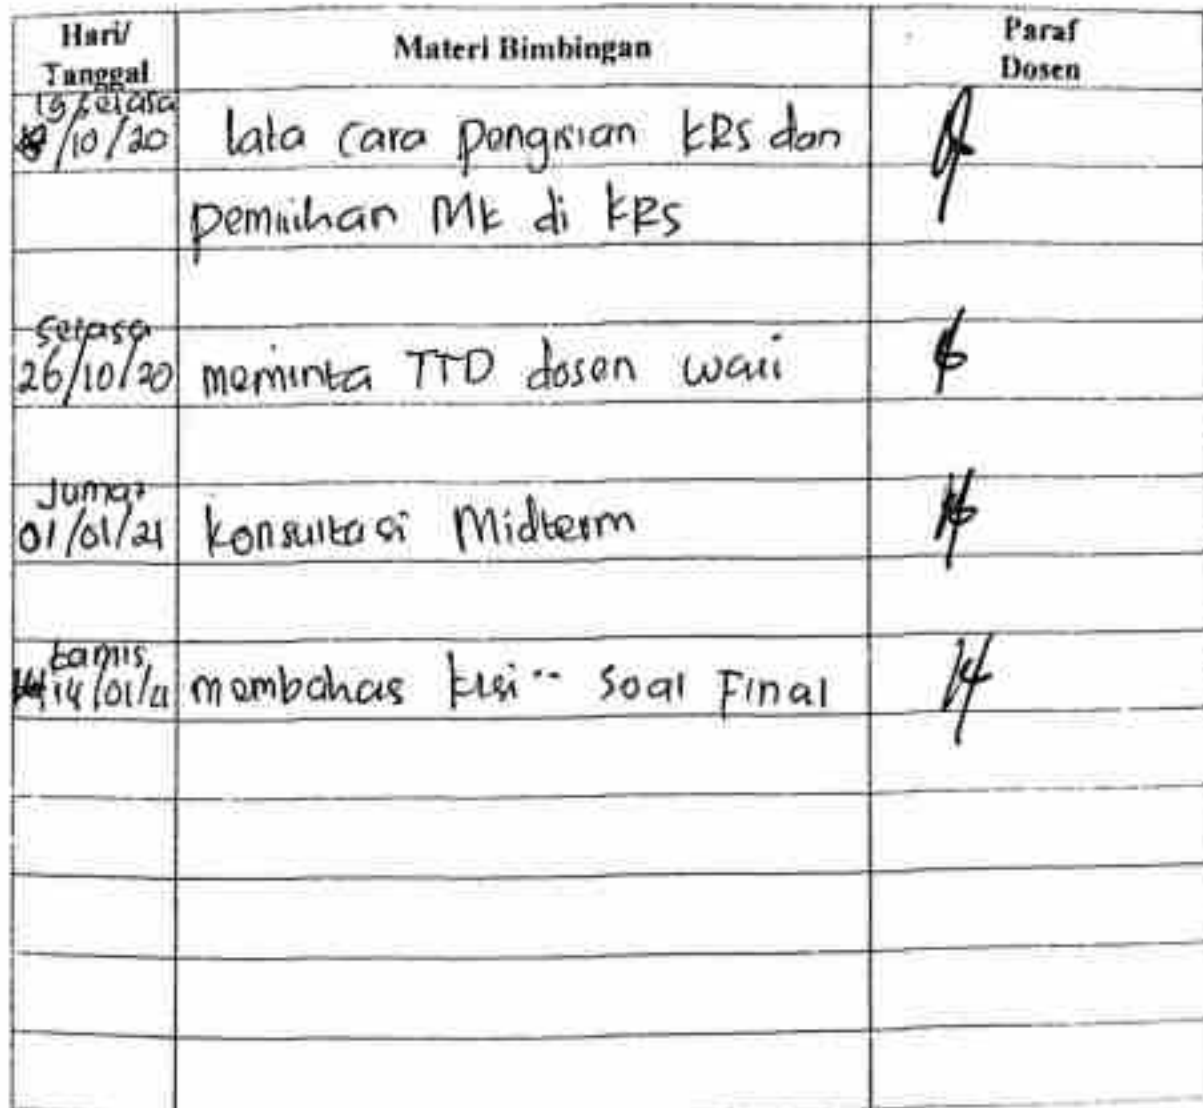 Hari/ Tanggal
Materi Bimbingan
Paraf Dosen
Selasa
/10/20
tata cara pengisian KRS dan
pemilihan MK di KRS
Selasa
26/10/20
meminta TTD dosen wali
Jumat
01/01/21
konsultasi Midterm
kamis
14/01/21
membahas kisi" soal Final